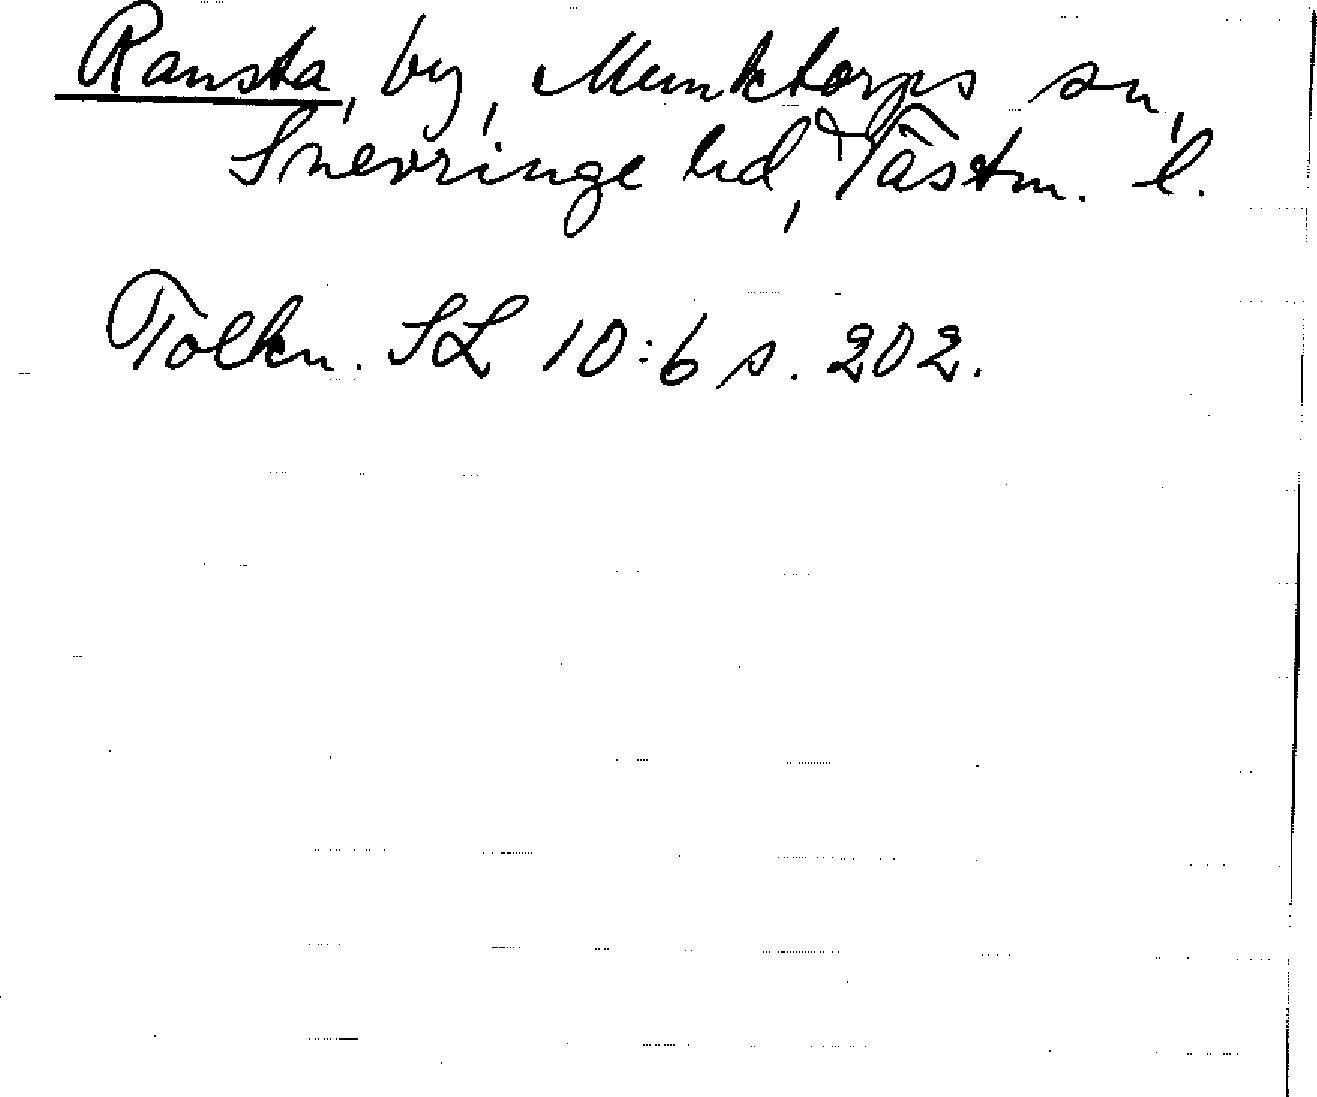 Ransta, by, Munktorps sn,
Snevringe hd, Västm. l.
Tolkn. SL 10:6 s. 202.